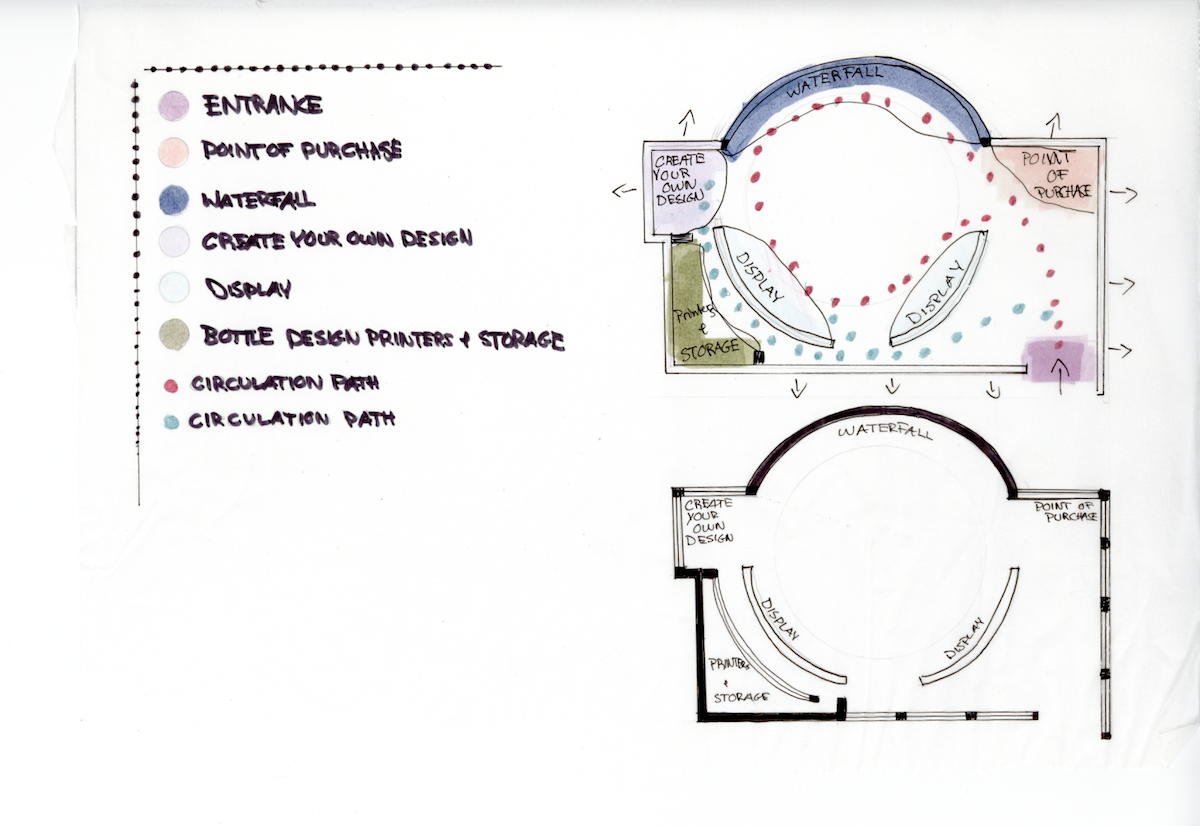 ENTRANCE
POINT OF PURCHASE
WATERFALL
CREATE YOUR OWN DESIGN
DISPLAY
BOTTLE DESIGN PRINTERS & STORAGE
CIRCULATION PATH
CIRCULATION PATH
WATERFALL
CREATE
YOUR
OWN
DESIGN
POINT
OF
PURCHASE
DISPLAY
DISPLAY
Printers
&
STORAGE
WATERFALL
CREATE
YOUR
OWN
DESIGN
POINT OF
PURCHASE
DISPLAY
DISPLAY
PRINTERS
&
STORAGE